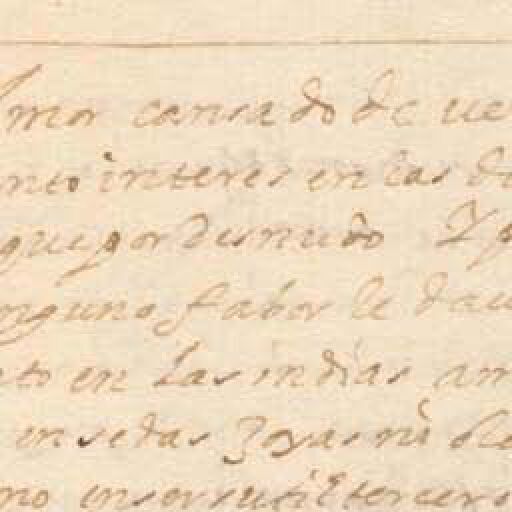 Amor cansado de ue
nto interes en las d
que por desnudo Y p
nguno fabor le dau
to en las indias am
en sedas Joyas ni
no en ser sutil tercero